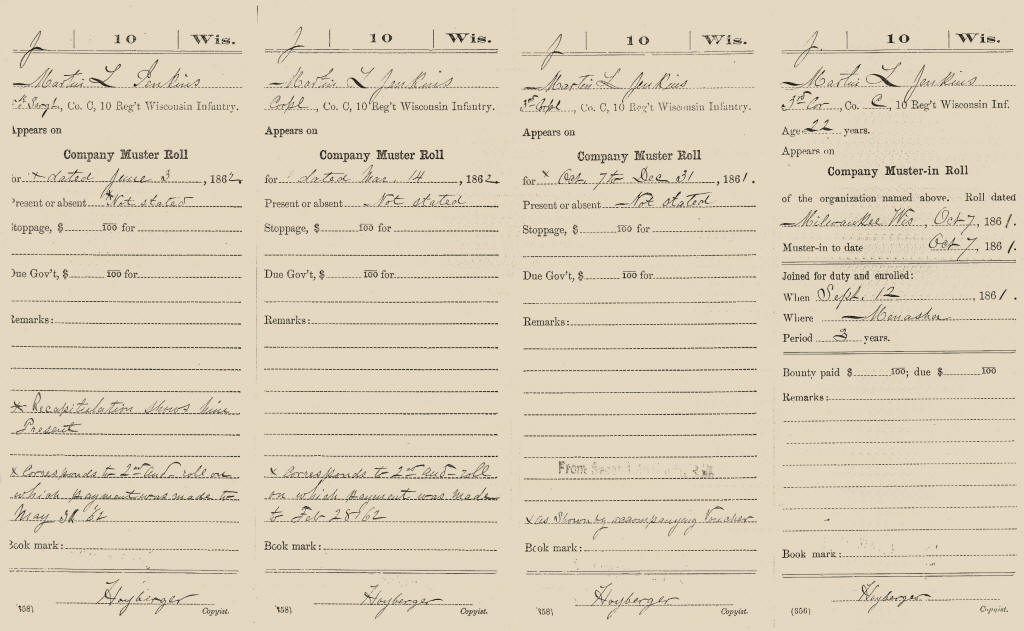 J | 10 | Wis.
Martin L Jenkins
Sergt, Co. C, 10 Reg't Wisconsin Infantry.
Appears on
Company Muster Roll
or x dated June 3, 1862.
Present or absent *Not stated
Stoppage, $ 100 for
Due Gov't, $ 100 for
Remarks:
* Recapitulation shows him
Present
x Corresponds to 2nd Aud- roll on
which payment was made to
May 31 62
Book mark:
Hoyberger
(358) Copyist.
J | 10 | Wis.
Martin L Jenkins
Corpl, Co. C, 10 Reg't Wisconsin Infantry.
Appears on
Company Muster Roll
for dated Mar. 14, 1862.
Present or absent Not stated
Stoppage, $ 100 for
Due Gov't, $ 100 for
Remarks:
x Corresponds to 2nd Aud- roll
on which payment was made
to Feb 28/62
Book mark:
Hoyberger
(358) Copyist.
J | 10 | Wis.
Martin L Jenkins
3rd Corpl, Co. C, 10 Reg't Wisconsin Infantry.
Appears on
Company Muster Roll
for x Oct. 7 to Dec 31, 1861.
Present or absent Not stated
Stoppage, $ 100 for
Due Gov't, $ 100 for
Remarks:
From
x as shown by accompanying Voucher
Book mark:
Hoyberger
(358) Copyist.
J | 10 | Wis.
Martin L Jenkins
3rd Cor, Co. C, 10 Reg't Wisconsin Inf.
Age 22 years.
Appears on
Company Muster-in Roll
of the organization named above. Roll dated
Milwaukee Wis, Oct 7, 1861.
Muster-in to date Oct 7, 1861.
Joined for duty and enrolled:
When Sept. 12, 1861.
Where Menasha
Period 3 years.
Bounty paid $ 100; due $ 100
Remarks:
Book mark:
Hoyberger
(356) Copyist.